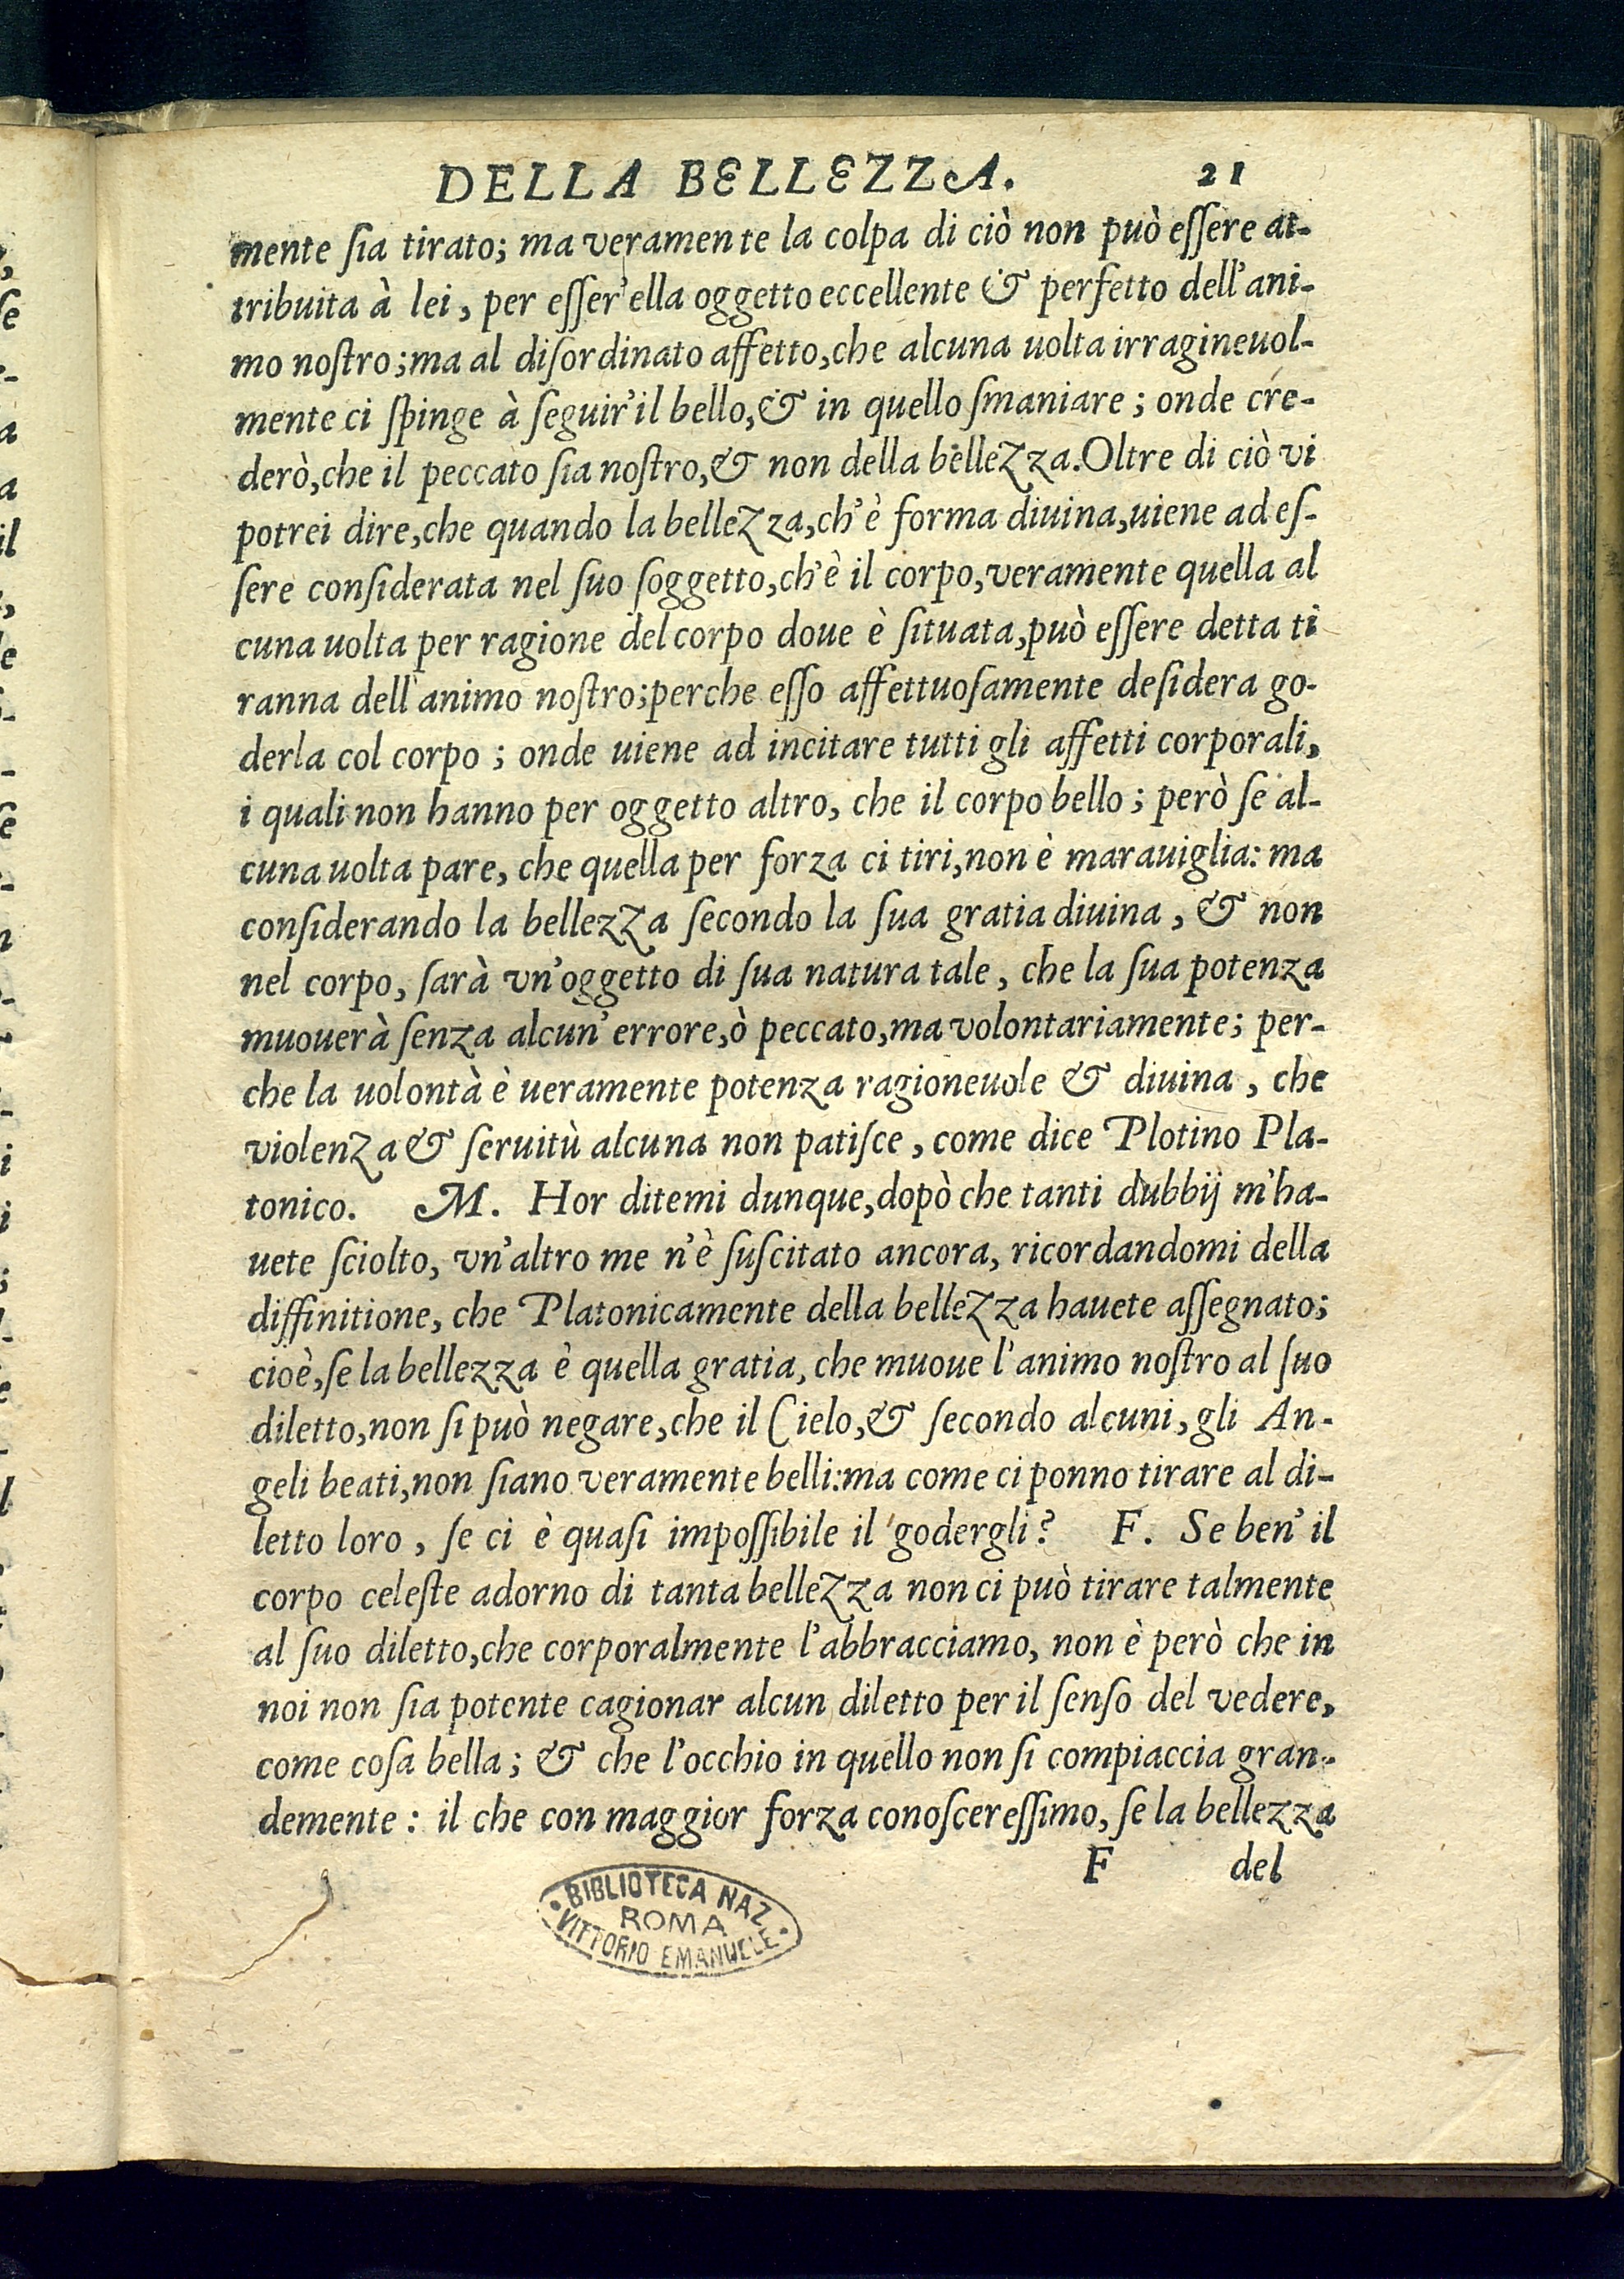 DELLA BELLEZZA. 21
mente ſia tirato; ma veramente la colpa di ciò non può eſſere at-
tribuita à lei, per eſſer'ella oggetto eccellente & perfetto dell'ani-
mo noſtro; ma al diſordinato affetto, che alcuna uolta irragineuol-
mente ci ſpinge à ſeguir'il bello, & in quello ſmaniare; onde cre-
derò, che il peccato ſia noſtro, & non della bellezza. Oltre di ciò vi
potrei dire, che quando la bellezza, ch'è forma diuina, uiene ad eſ-
ſere conſiderata nel ſuo ſoggetto, ch'è il corpo, veramente quella al
cuna uolta per ragione del corpo doue è ſituata, può eſſere detta ti
ranna dell'animo noſtro; perche eſſo affettuoſamente deſidera go-
derla col corpo; onde uiene ad incitare tutti gli affetti corporali,
i quali non hanno per oggetto altro, che il corpo bello; però ſe al-
cuna uolta pare, che quella per forza ci tiri, non è marauiglia: ma
conſiderando la bellezza ſecondo la ſua gratia diuina, & non
nel corpo, ſarà vn'oggetto di ſua natura tale, che la ſua potenza
muouerà ſenza alcun'errore, ò peccato, ma volontariamente; per-
che la uolontà è ueramente potenza ragioneuole & diuina, che
violenza & ſeruitù alcuna non patiſce, come dice Plotino Pla-
tonico. M. Hor ditemi dunque, dopò che tanti dubbij m'ha-
uete ſciolto, vn'altro me n'è ſuſcitato ancora, ricordandomi della
diffinitione, che Platonicamente della bellezza hauete aſſegnato;
cioè, ſe la bellezza è quella gratia, che muoue l'animo noſtro al ſuo
diletto, non ſi può negare, che il Cielo, & ſecondo alcuni, gli An-
geli beati, non ſiano veramente belli: ma come ci ponno tirare al di-
letto loro, ſe ci è quaſi impoſſibile il godergli? F. Se ben'il
corpo celeſte adorno di tanta bellezza non ci può tirare talmente
al ſuo diletto, che corporalmente l'abbracciamo, non è però che in
noi non ſia potente cagionar alcun diletto per il ſenſo del vedere,
come coſa bella; & che l'occhio in quello non ſi compiaccia gran-
demente: il che con maggior forza conoſcereſſimo, ſe la bellezza
F del
BIBLIOTECA NAZ.
ROMA
VITTORIO EMANUELE